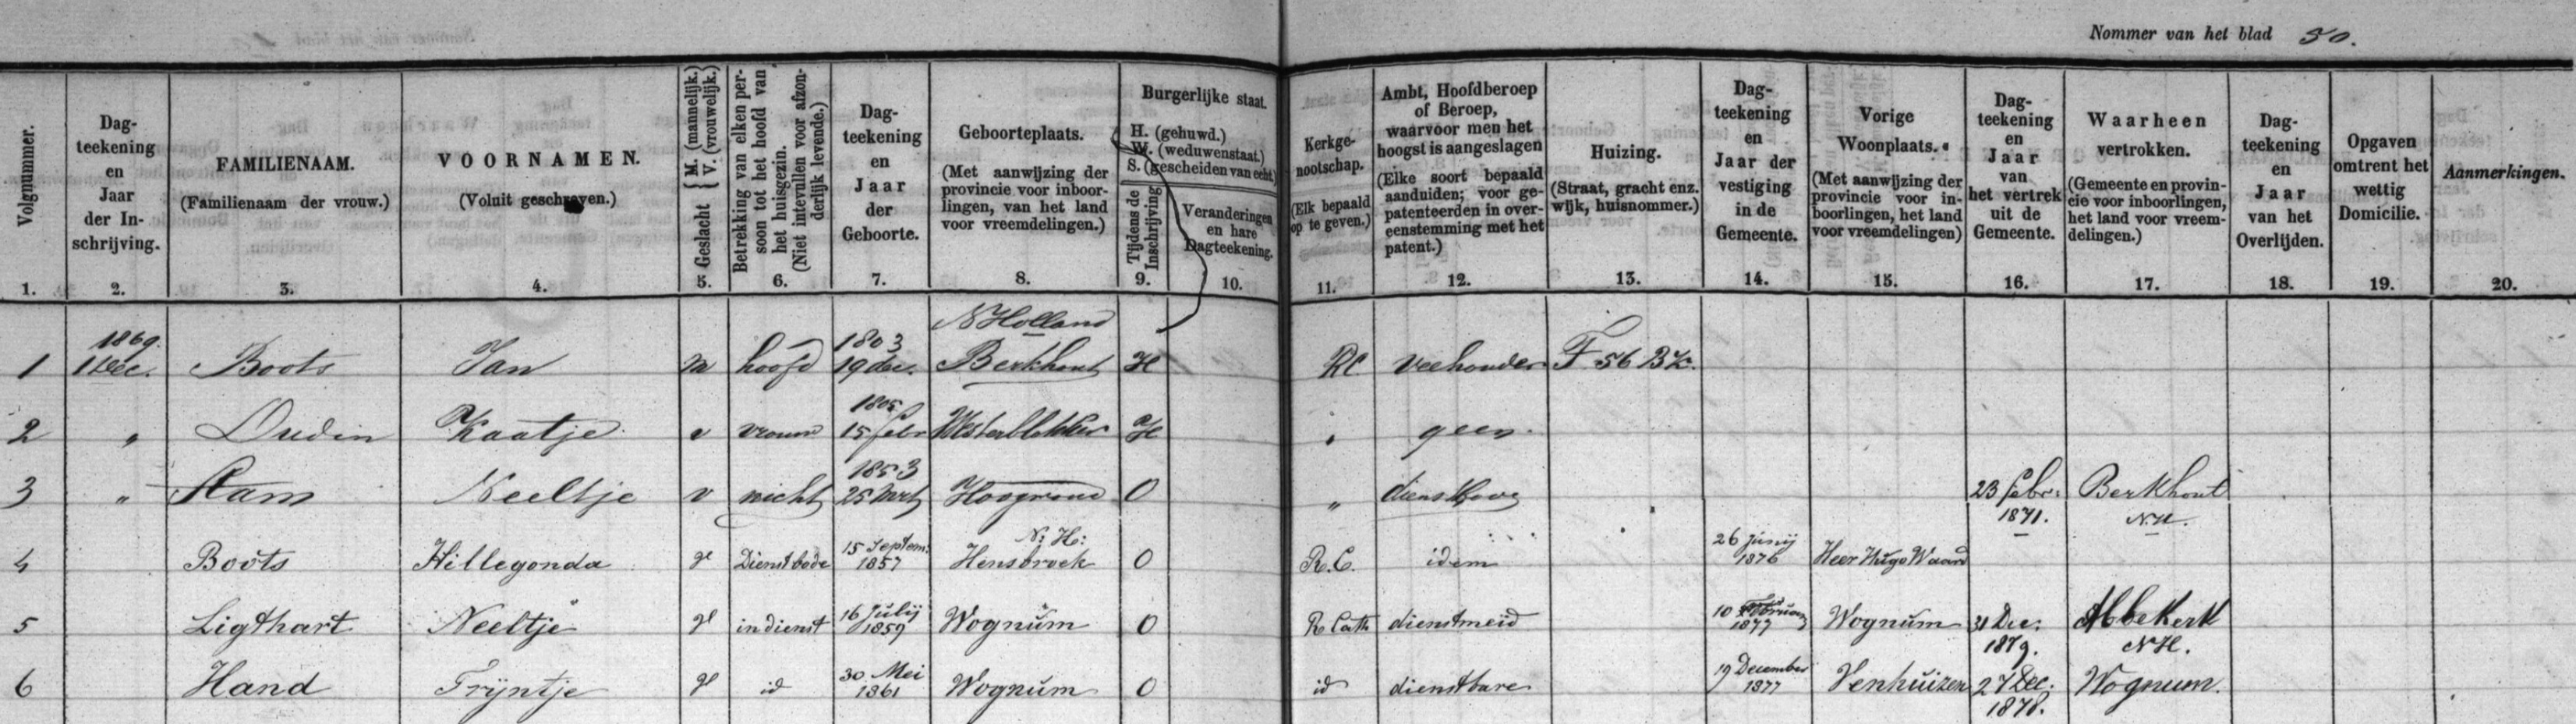 Nommer van het blad 50.
Volgnummer.
1.
Dag-
teekening
en
Jaar
der In-
schrijving.
2.
FAMILIENAAM.
(Familienaam der vrouw.)
3.
VOORNAMEN.
(Voluit geschreven.)
4.
Geslacht { M. (mannelijk.)
V. (vrouwelijk.)
5.
Betrekking van elken per-
soon tot het hoofd van
het huisgezin.
(Niet intevullen voor afzon-
derlijk levende.)
6.
Dag-
teekening
en
Jaar
der
Geboorte.
7.
Geboorteplaats.
(Met aanwijzing der
provincie voor inboor-
lingen, van het land
voor vreemdelingen.)
8.
Burgerlijke staat.
H. (gehuwd.)
W. (weduwenstaat.)
S. (gescheiden van echt.)
Tijdens de
Inschrijving
9.
Veranderingen
en hare
Dagteekening.
10.
Kerkge-
nootschap.
(Elk bepaald
op te geven.)
11.
Ambt, Hoofdberoep
of Beroep,
waarvoor men het
hoogst is aangeslagen
(Elke soort bepaald
aanduiden; voor ge-
patenteerden in over-
eenstemming met het
patent.)
12.
Huizing.
(Straat, gracht enz.
wijk, huisnommer.)
13.
Dag-
teekening
en
Jaar der
vestiging
in de
Gemeente.
14.
Vorige
Woonplaats.
(Met aanwijzing der
provincie voor in-
boorlingen, het land
voor vreemdelingen)
15.
Dag-
teekening
en
Jaar
van
het vertrek
uit de
Gemeente.
16.
Waarheen
vertrokken.
(Gemeente en provin-
cie voor inboorlingen,
het land voor vreem-
delingen.)
17.
Dag-
teekening
en
Jaar
van het
Overlijden.
18.
Opgaven
omtrent het
wettig
Domicilie.
19.
Aanmerkingen.
20.
1869. 1803 N Holland
1 1 Dec. Boots Jan m hoofd 19 dec. Berkhout H RC veehouder F 56 Bk.
1805
2 " Oudin Kaatje v vrouw 15 febr Westerblokker H " geen
1853
3 " Stam Neeltje v nicht 25 mrt Hoogwoud O " dienstbaar 23 febr: Berkhout
1871. N.H.
15 Septem: N: H: 26 junij
4 Boots Hillegonda V Dienstbode 1857 Hensbroek O R.C. idem 1876 Heer Hugo Waard
16 Julij 10 Februarij
5 Ligthart Neeltje V in dienst 1859 Wognum O R Cath dienstmeid 1877 Wognum 31 Dec: Abbekerk
1879. NH.
30 Mei 19 December
6 Hand Trijntje V id 1861 Wognum O id dienstbare 1877 Venhuizen 27 Dec. Wognum.
1878.